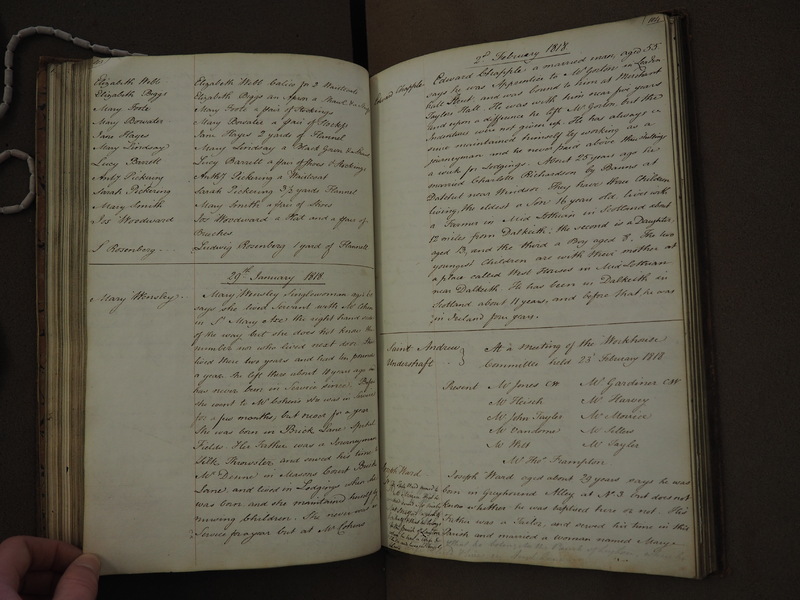 Elizabeth Webb Elizabeth Webb Calico for 2
Elizabeth Boggs Elizabeth Boggs an Apron a Shawl &
Mary Foote Mary Foote a pair of Stockings
Mary Bowater Mary Bowater a Gown of
Ann Hayes Ann Hayes 2 yards of Flannel
Mary Lindsay Mary Lindsay a Black Gown &
Lucy Barrell Lucy Barrell a pair of Shoes & Stockings
Anty Pickering Anthy Pickering a Waistcoat
Sarah Pickering Sarah Pickering 3½ yards Flannel
Mary Smith Mary Smith a pair of Shoes
Jos Woodward Jos Woodward a Hat and a pair of
Breeches
L Rosenberg Ludwig Rosenberg 1 yard of Flannell
29th January 1818
Mary Wensley Mary Wensley Singlewoman aged
says she lived Servant with Mr Cohen
in St Mary Axe the right hand side
of the way but she does not know the
number nor who lived next door She
lived there two years and had ten pounds
a year. She left there about 18 years ago and
has never been in Service since. Before
she went to Mr Cohens she was in Service
for a few months, but never for a year
She was born in Brick Lane Spital
Fields. Her Father was a Journeyman
Silk Throwster, and served his time to
Mr Denne in Masons Court Brick
Lane, and lived in Lodgings when she
was born and she maintained herself by
nursing Children. She never was in
Service for a year but at Mr Cohens
2d February 1818
Edward Chapple Edward Chapple, a married man, aged 55
says he was Apprentice to Mr Gorton in London
and was bound to him at Merchant
Taylors Hall. He was with him near five years
and upon a difference he left Mr Gorton, but the
Indentures were not given up. He has always
since maintained himself by working as a
journeyman and he never paid above
a week for Lodgings. About 25 years ago he
married Charlotte Richardson by Banns at
Datchet near Windsor. They have three Children
living, the eldest a Son 16 years old lives with
a Farmer in Mid Lothian in Scotland about
12 miles from Dalkeith: the second is a Daughter
aged 13, and the third a Boy aged 8. The two
youngest Children are with their mother at
a place called West Houses in Mid Lothian
near Dalkeith. He has been in Dalkeith in
Scotland about 11 years, and before that he was
in Ireland four years.
Saint Andrew Undershaft At a Meeting of the Workhouse
Committee held 23d February 1818
Present Mr Jones CW Mr Gardiner CW
Mr Fleisch Mr Harvey
Mr John Taylor Mr Morrice
Mr Vandome Mr Sellers
Mr West Mr Taylor
Mr Thos Frampton
Joseph Ward Joseph Ward aged about 29 years says he was
born in Greyhound Alley at No 3 but does not
know whether he was baptised here or not. His
Father was a Tailor, and served his time in this
Parish and married a woman named Mary